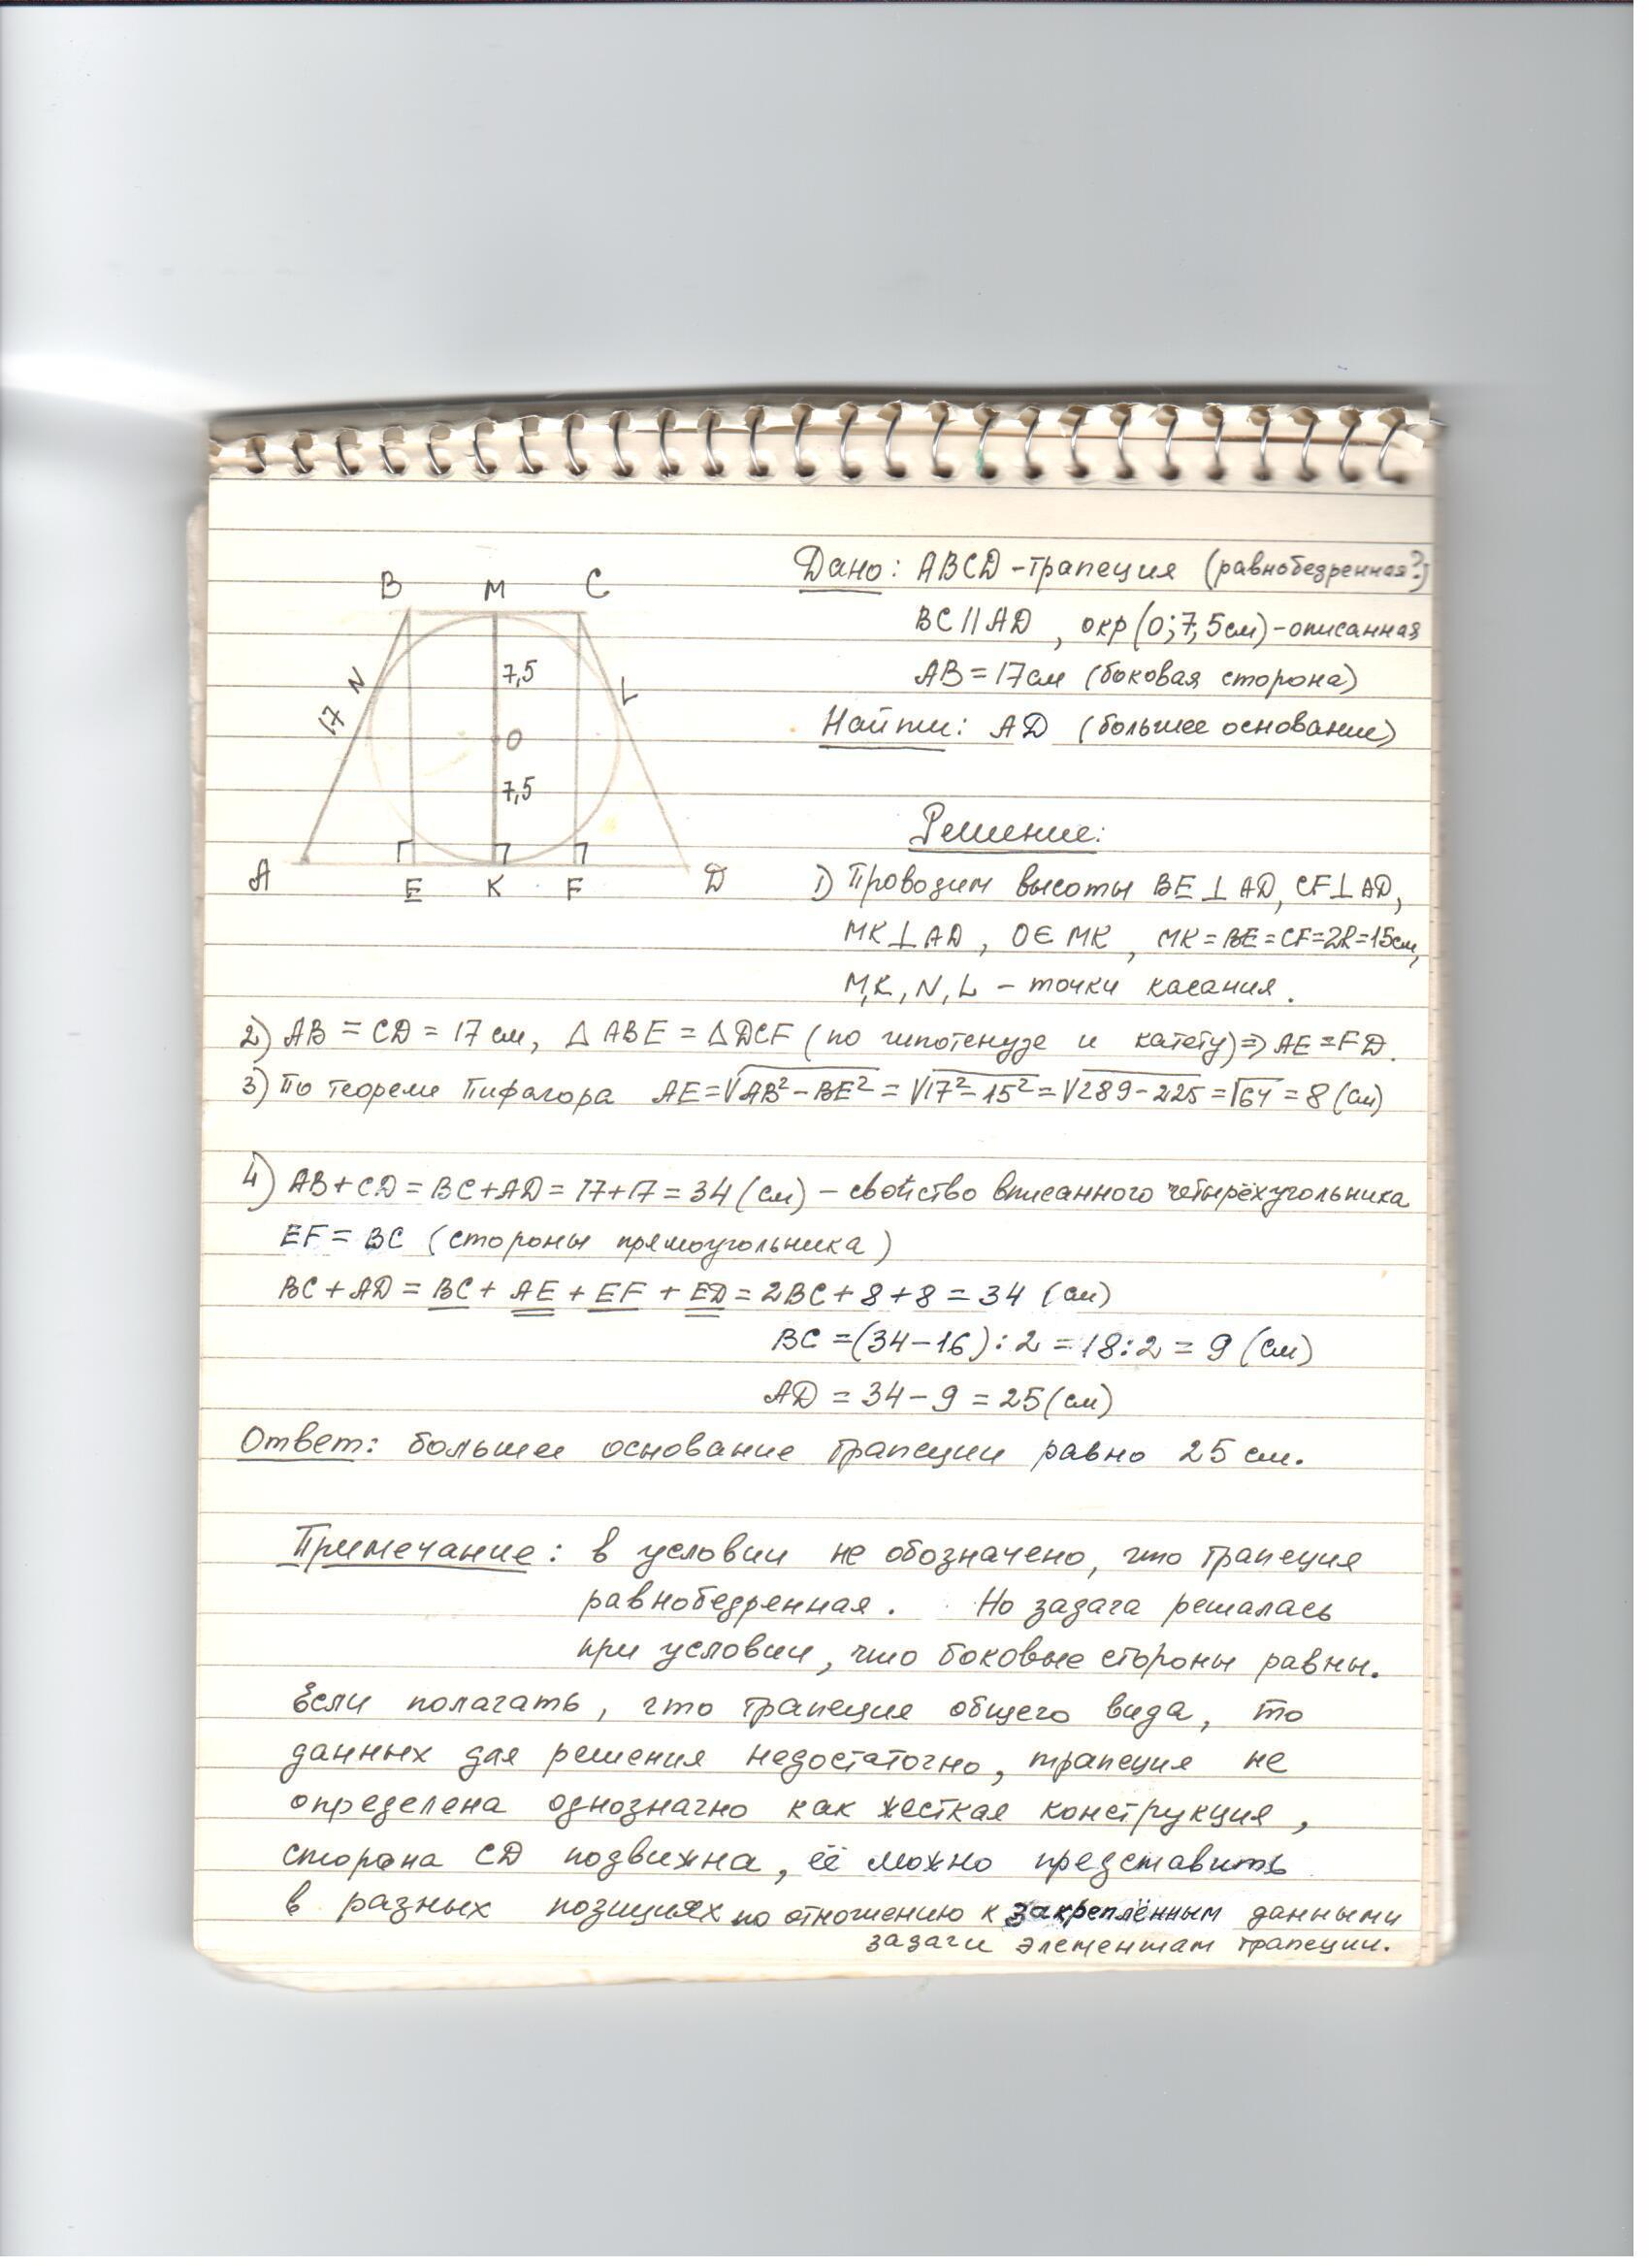 B M C
N 7,5 L
17
O
7,5
A E K F D
Дано: ABCD - трапеция (равнобедренная?)
BC || AD, окр (O; 7,5 см) - описанная
AB = 17 см (боковая сторона)
Найти: AD (большее основание)
Решение:
1) Проводим высоты BE ⊥ AD, CF ⊥ AD,
MK ⊥ AD, O ∈ MK, MK = BE = CF = 2R = 15 см,
M, K, N, L - точки касания.
2) AB = CD = 17 см, △ ABE = △ DCF (по гипотенузе и катету) ⇒ AE = FD.
3) По теореме Пифагора AE = √AB² - BE² = √17² - 15² = √289 - 225 = √64 = 8 (см)
4) AB + CD = BC + AD = 17 + 17 = 34 (см) - свойство вписанного четырёхугольника
EF = BC (стороны прямоугольника)
BC + AD = BC + AE + EF + ED = 2BC + 8 + 8 = 34 (см)
BC = (34 - 16) : 2 = 18 : 2 = 9 (см)
AD = 34 - 9 = 25 (см)
Ответ: большее основание трапеции равно 25 см.
Примечание: в условии не обозначено, что трапеция
равнобедренная. Но задача решалась
при условии, что боковые стороны равны.
Если полагать, что трапеция общего вида, то
данных для решения недостаточно, трапеция не
определена однозначно как жесткая конструкция,
сторона CD подвижна, её можно представить
в разных позициях по отношению к закреплённым данными
задачи элементам трапеции.